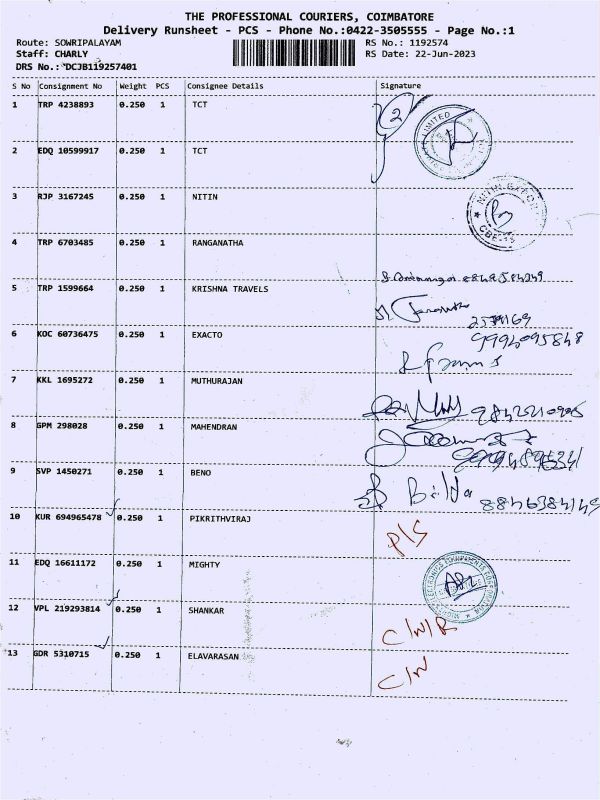 THE PROFESSIONAL COURIERS, COIMBATORE
Delivery Runsheet - PCS - Phone No.:0422-3505555 - Page No.:1
Route: SOWRIPALAYAM RS No.: 1192574
Staff: CHARLY RS Date: 22-Jun-2023
DRS No.: *DCJB119257401
S No Consignment No Weight PCS Consignee Details Signature
1 TRP 4238893 0.250 1 TCT 2
2 EDQ 10599917 0.250 1 TCT
3 RJP 3167245 0.250 1 NITIN
4 TRP 6703485 0.250 1 RANGANATHA
5 TRP 1599664 0.250 1 KRISHNA TRAVELS
6 KOC 60736475 0.250 1 EXACTO 9994095848
7 KKL 1695272 0.250 1 MUTHURAJAN
8 GPM 298028 0.250 1 MAHENDRAN
9 SVP 1450271 0.250 1 BENO
10 KUR 694965478 0.250 1 PIKRITHVIRAJ P/S
11 EDQ 16611172 0.250 1 MIGHTY
12 VPL 219293814 0.250 1 SHANKAR C/N/R
13 GDR 5310715 0.250 1 ELAVARASAN C/N